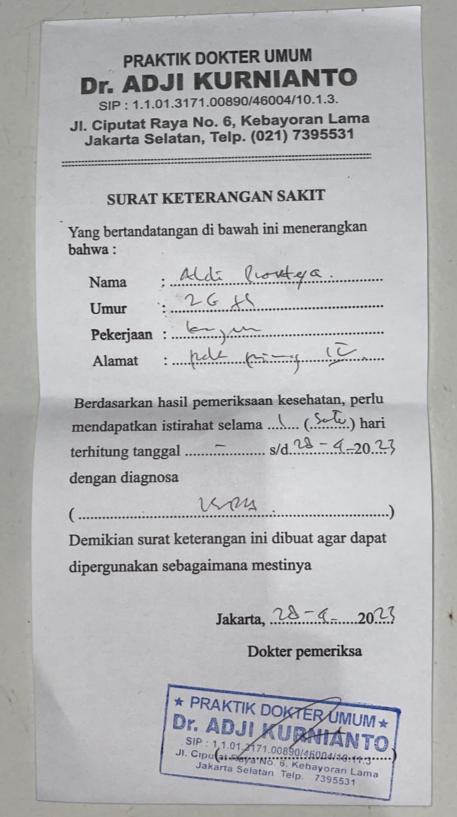 PRAKTIK DOKTER UMUM
Dr. ADJI KURNIANTO
SIP : 1.1.01.3171.00890/46004/10.1.3.
Jl. Ciputat Raya No. 6, Kebayoran Lama
Jakarta Selatan, Telp. (021) 7395531
SURAT KETERANGAN SAKIT
Yang bertandatangan di bawah ini menerangkan
bahwa :
Nama : Aldi
Umur : 26
Pekerjaan :
Alamat :
Berdasarkan hasil pemeriksaan kesehatan, perlu
mendapatkan istirahat selama 1 (Satu) hari
terhitung tanggal - s/d. 28 - 4 - 2023
dengan diagnosa
( )
Demikian surat keterangan ini dibuat agar dapat
dipergunakan sebagaimana mestinya
Jakarta, 28 - 4 - 2023
Dokter pemeriksa
★ PRAKTIK DOKTER UMUM ★
Dr. ADJI KURNIANTO
SIP : 1.1.01.3171.00890/46004/10.11.3
Jl. Ciputat Raya No. 6, Kebayoran Lama
Jakarta Selatan Telp. 7395531